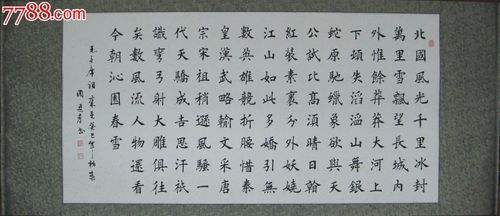 7788.com
北國風光千里冰封
萬里雪飄望長城內
外惟餘莽莽大河上
下頓失滔滔山舞銀
蛇原馳蠟象欲與天
公試比高須晴日
紅裝素裹分外妖嬈
江山如此多嬌引無
數英雄競折腰惜秦
皇漢武略輸文采唐
宗宋祖稍遜風騷一
代天驕成吉思汗祇
識彎弓射大雕俱往
矣數風流人物還看
今朝沁園春雪
毛主席詞